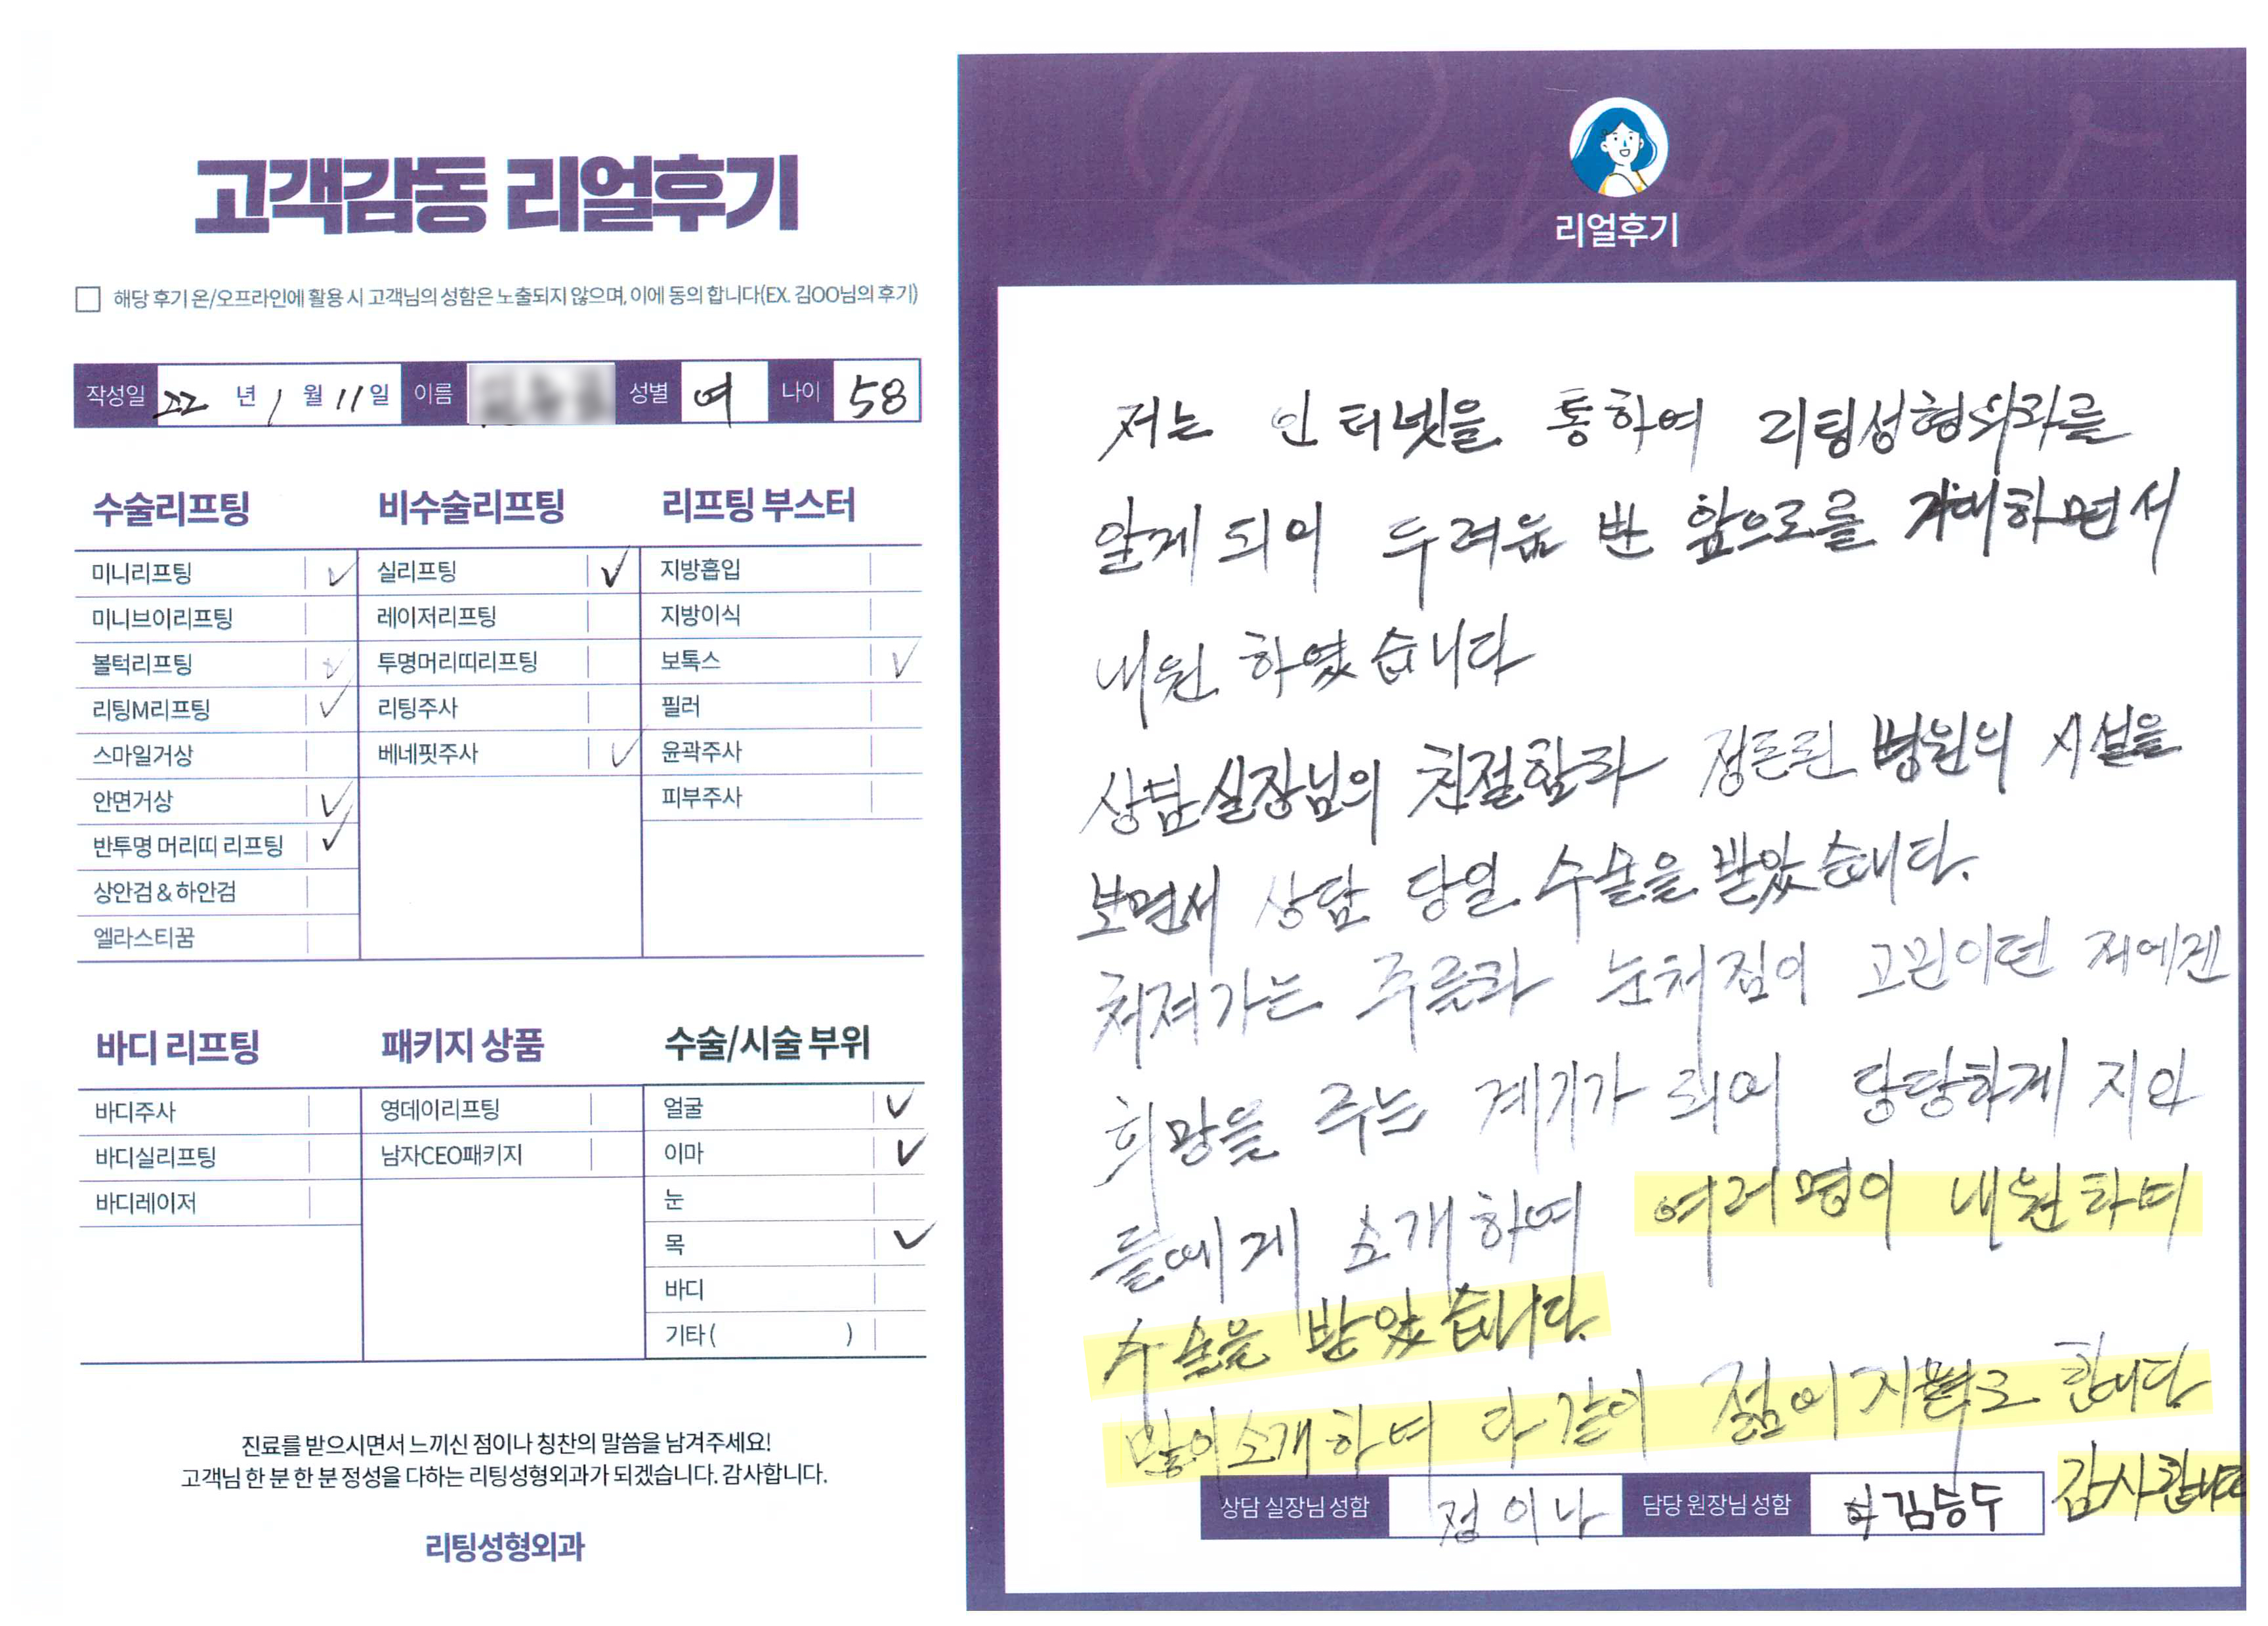 고객감동 리얼후기
해당 후기 온/오프라인에 활용 시 고객님의 성함은 노출되지 않으며, 이에 동의 합니다(EX. 김OO님의 후기)
작성일 22 년 1 월 11 일 이름 성별 여 나이 58
수술리프팅
미니리프팅 ✓
미니브이리프팅
볼턱리프팅 ✓
리팅M리프팅 ✓
스마일거상
안면거상 ✓
반투명 머리띠 리프팅 ✓
상안검 & 하안검
엘라스티꿈
비수술리프팅
실리프팅 ✓
레이저리프팅
투명머리띠리프팅
리팅주사
베네핏주사 ✓
리프팅 부스터
지방흡입
지방이식
보톡스 ✓
필러
윤곽주사
피부주사
바디 리프팅
바디주사
바디실리프팅
바디레이저
패키지 상품
영데이리프팅
남자CEO패키지
수술/시술 부위
얼굴 ✓
이마 ✓
눈
목 ✓
바디
기타 ( )
진료를 받으시면서 느끼신 점이나 칭찬의 말씀을 남겨주세요!
고객님 한 분 한 분 정성을 다하는 리팅성형외과가 되겠습니다. 감사합니다.
리팅성형외과
Review
리얼후기
저는 인터넷을 통하여 리팅성형외과를
알게 되어 두려움 반 앞으로를 기대하면서
내원 하였습니다
상담실장님의 친절함과 정돈된 병원의 시설을
보면서 상담 당일 수술을 받았습니다.
쳐져가는 주름과 눈쳐짐이 고민이던 저에겐
희망을 주는 계기가 되어 당당하게 지인
들에게 소개하여 여러명이 내원하여
수술을 받았습니다.
많이소개하여 다 같이 젊어 합니다
감사합니다
상담 실장님 성함 정이나 담당 원장님 성함 김승두